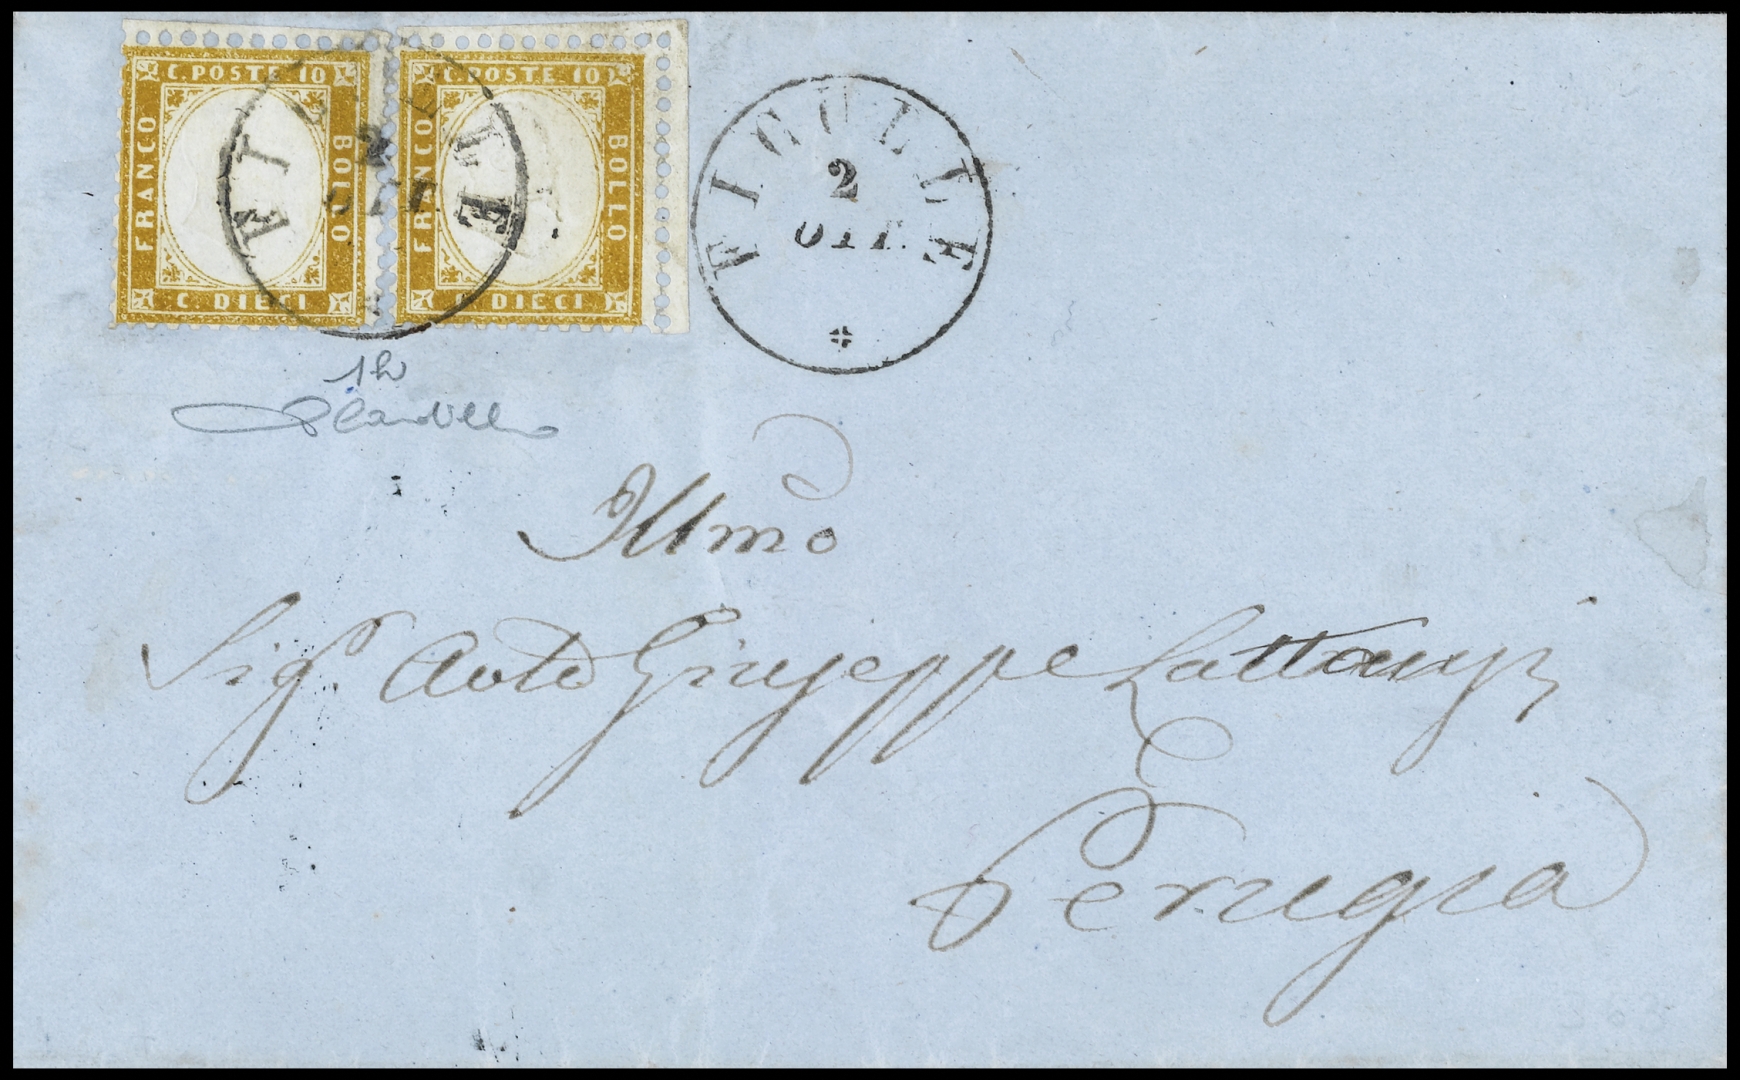 C. POSTE 10
FRANCO
BOLLO
C. DIECI
C. POSTE 10
FRANCO
BOLLO
C. DIECI
FICULLE
2
OTT.
FICULLE
2
OTT.
Illmo
Sigr. Giuseppe Lattanzj
Perugia